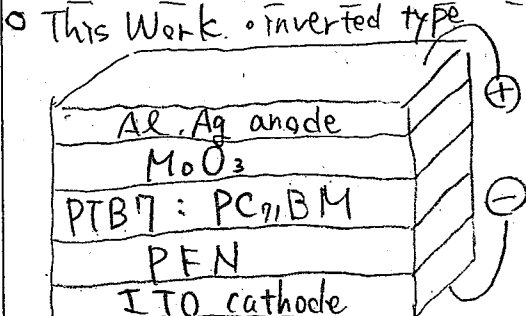 ○ This Work. ・inverted type
⊕
Al, Ag anode
MoO3
PTB7 : PC71BM
⊖
PFN
ITO cathode